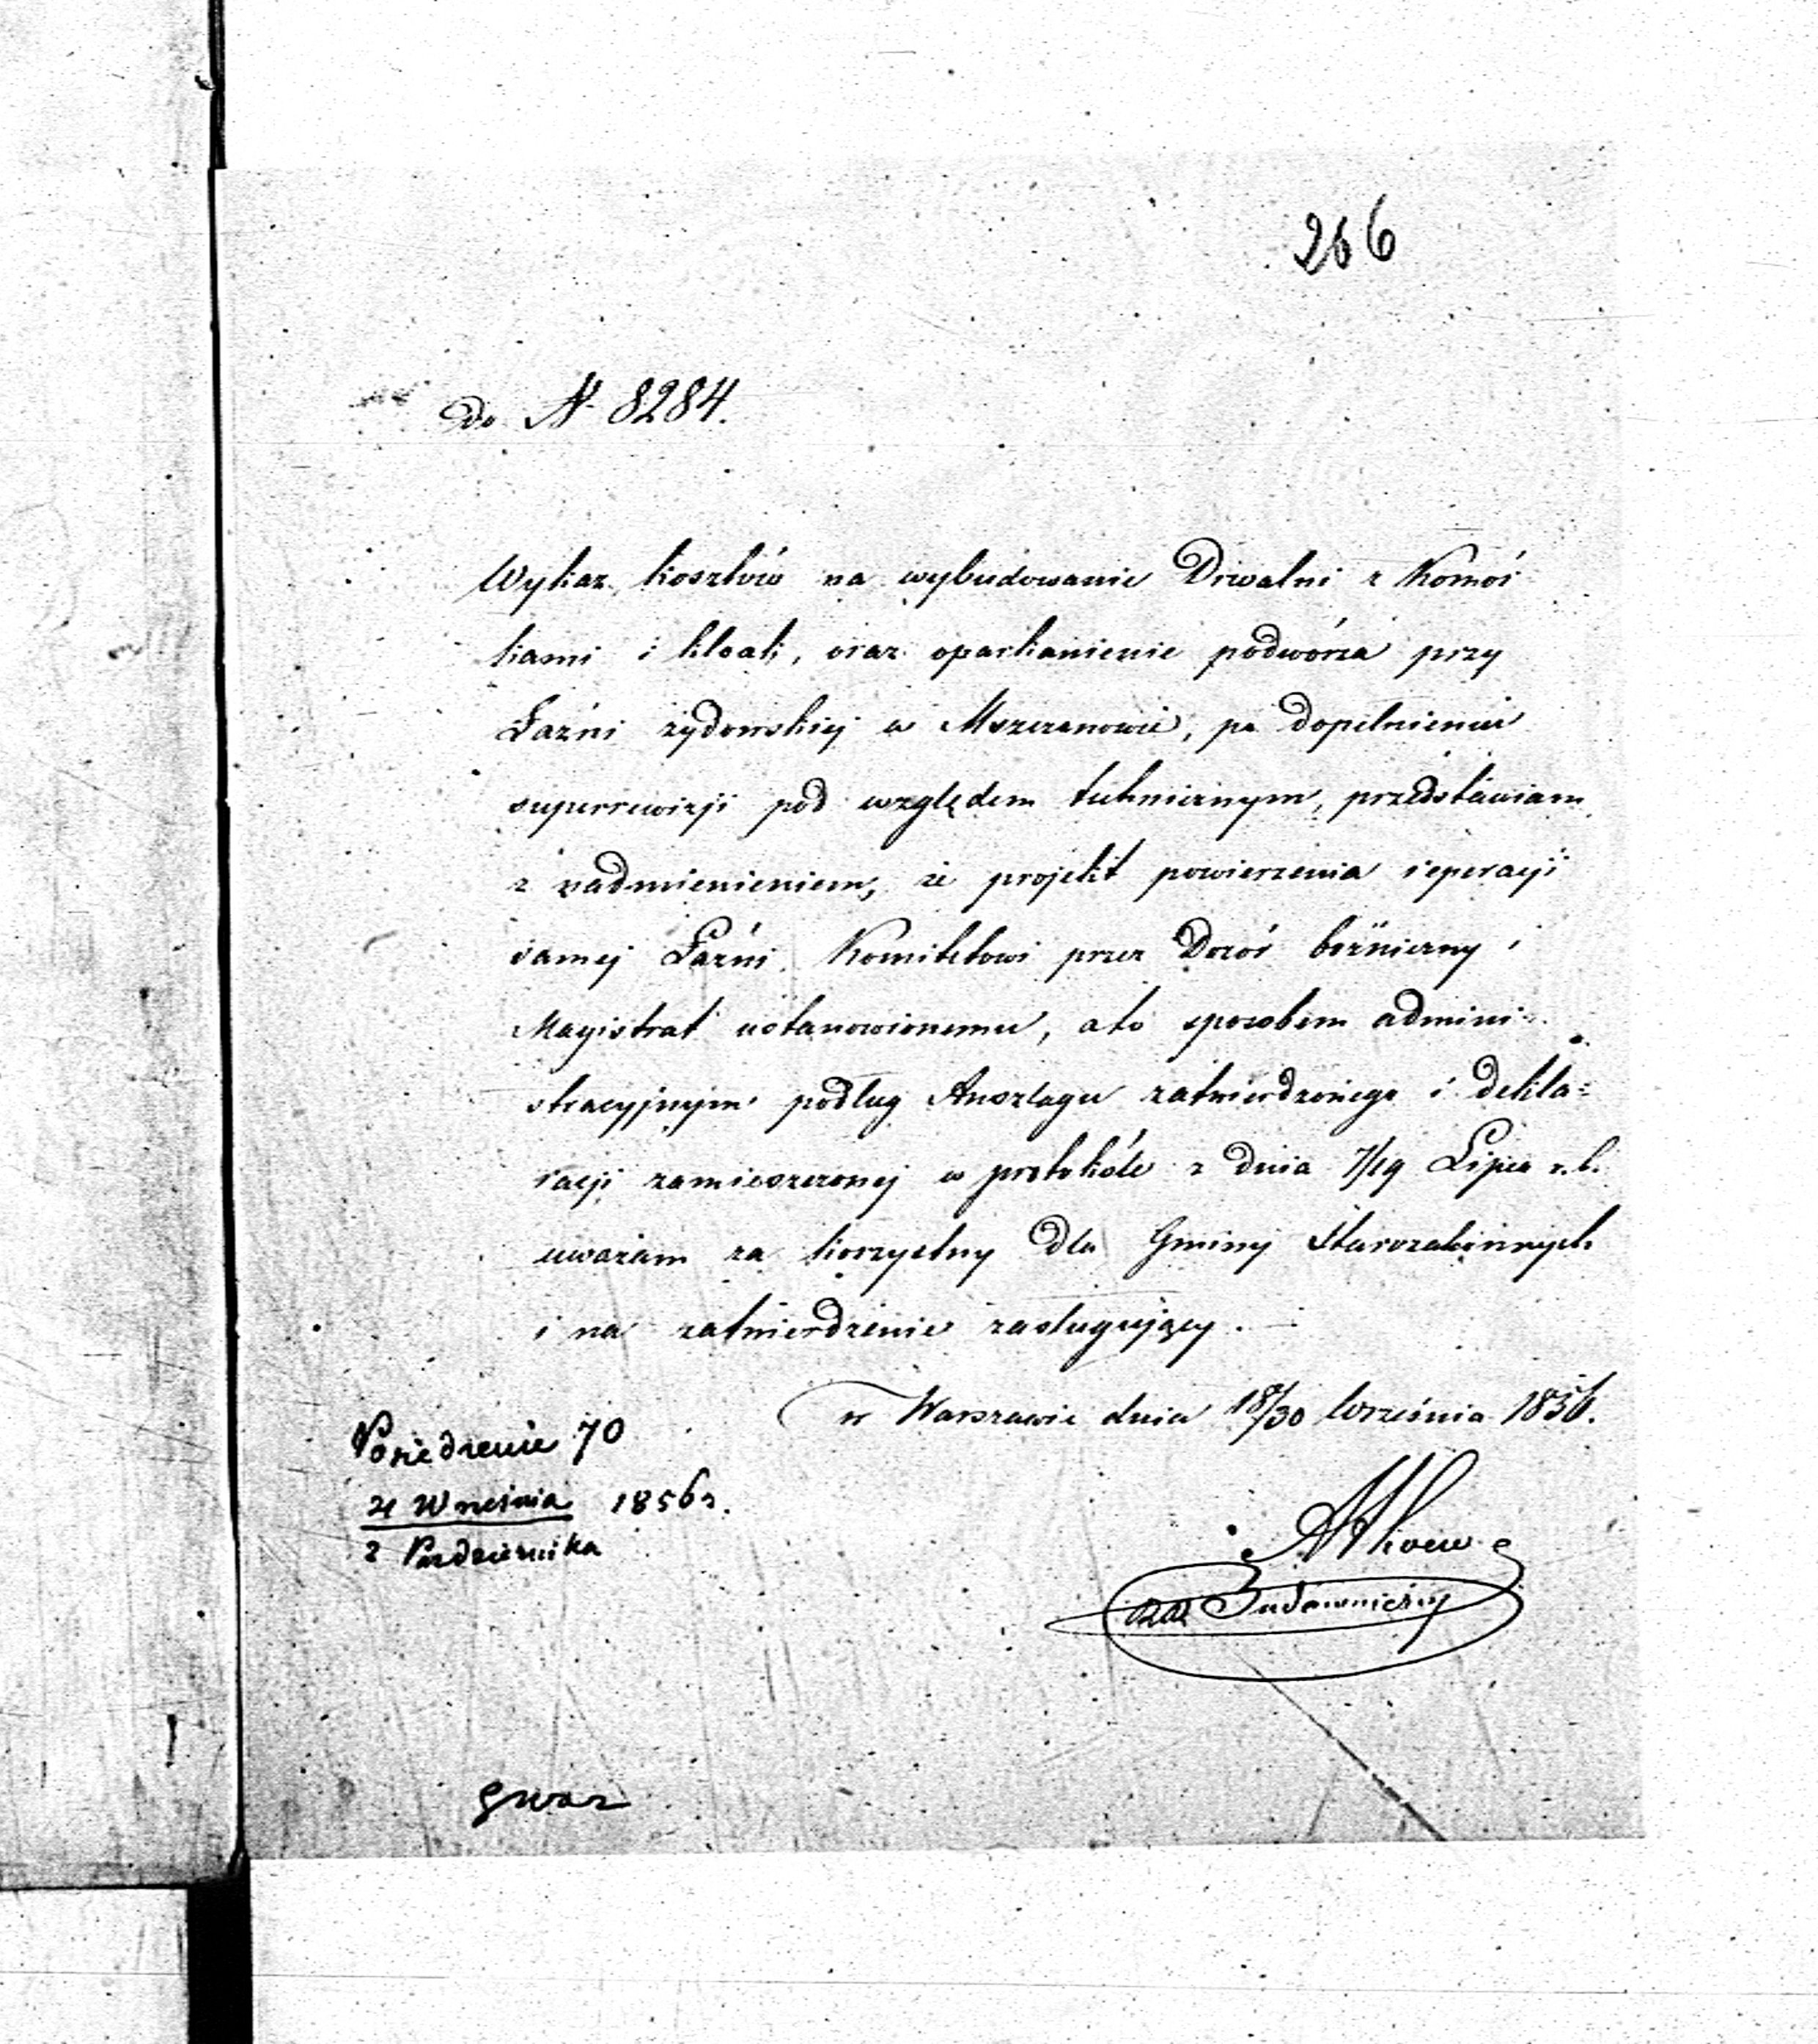 266
do N 8284.
Wykaz kosztów na wybudowanie Drwalni z Komór
kami i kloak, oraz oparkanienie podwórza przy
Łaźni żydowskiej w Mszczonowie, po dopełnieniu
superrewizji pod względem technicznym, przedstawiam
z nadmienieniem, że projekt powierzenia reperacji
samej Łaźni Komitetowi przez Dozór bóżniczny i
Magistrat ustanowionemu, a to sposobem admini-
stracyjnym podług Anszlagu zatwierdzonego i dekla=
racji zamieszczonej w protokóle z dnia 7/19 Lipca r. b.
uważam za korzystny dla Gminy Starozakonnych
i na zatwierdzenie zasługujący. —
w Warszawie dnia 18/30 Września 1856.
Posiedzenie 70
Września 1856 r.
2 Października
Budowniczy